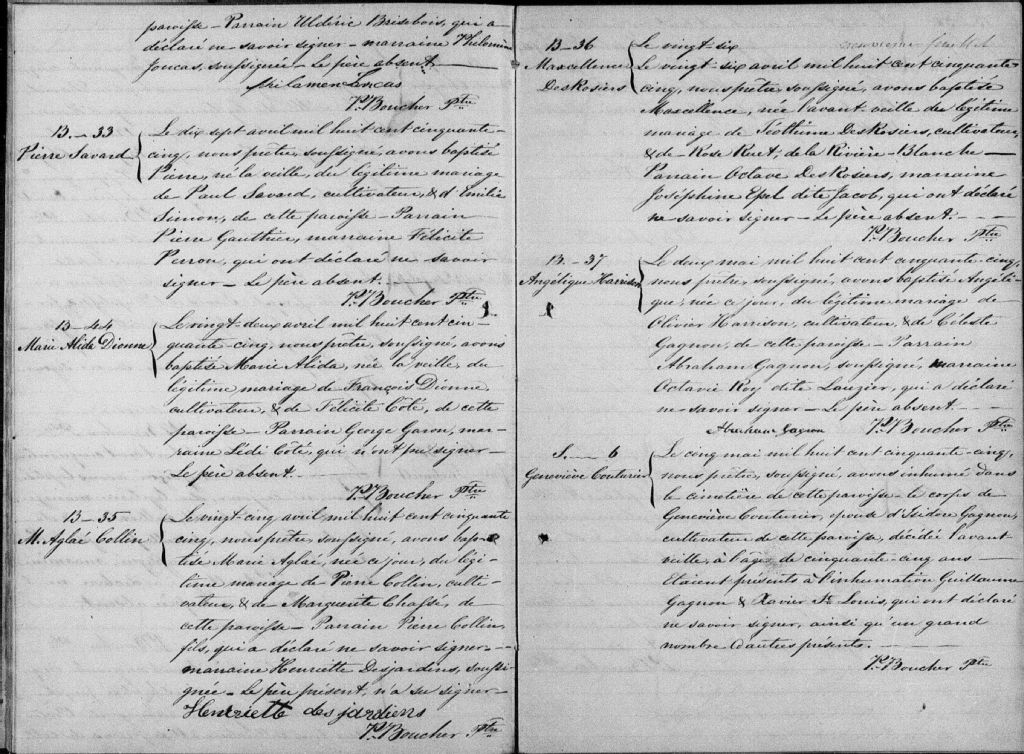 paroisse – Parrain Uldéric Brisebois, qui a
déclaré ne savoir signer – marraine Philomène
Joucas, soussignée – Le père absent.
Philamen Lucas
P. Boucher Ptre
B. – 33
Pierre Savard
Le dix sept avril mil huit cent cinquante-
cinq, nous prêtre, soussigné, avons baptisé
Pierre, né la veille, du légitime mariage
de Paul Savard, cultivateur, & d'Emilie
Simon, de cette paroisse – Parrain
Pierre Gauthier, marraine Félicité
Perron, qui ont déclaré ne savoir
signer – Le père absent.
P. Boucher Ptre
B – 44
Marie Alida Dionne
Le vingt-deux avril mil huit cent cin-
quante-cinq, nous prêtre, soussigné, avons
baptisé Marie Alida, née la veille du
légitime mariage de François Dionne,
cultivateur, & de Félicité Coté, de cette
paroisse – Parrain George Garon, mar-
raine Lédi Coté, qui n'ont pu signer –
Le père absent. –
P. Boucher Ptre
B – 35
M. Aglaé Collin
Le vingt-cinq avril mil huit cent cinquante
cinq, nous prêtre, soussigné, avons bap-
tisé Marie Aglaé, née ce jour, du légi-
time mariage de Pierre Collin, culti-
vateur, & de Marguerite Chassé, de
cette paroisse – Parrain Pierre Collin,
fils, qui a déclaré ne savoir signer –
marraine Henriette Desjardins, soussi-
gnée – Le père présent, n'a su signer –
Henriette des jardiens
P. Boucher Ptre
B – 36
Maxcellence
DesRosiers
Le vingt-six
Le vingt-six avril mil huit cent cinquante
cinq, nous prêtre, soussigné, avons baptisé
Maxcellence, née l'avant veille du légitime
mariage de Teothime DesRosiers, cultivateur,
& de Rose Ruet, de la Rivière-Blanche –
Parrain Octave DesRosiers, marraine
Joséphine Epel dite Jacob, qui ont déclaré
ne savoir signer – Le père absent. –
P. Boucher Ptre
B – 37
Angélique Harrison
Le deux mai mil huit cent cinquante-cinq,
nous prêtre, soussigné, avons baptisé Angéli-
que, née ce jour, du légitime mariage de
Olivier Harrison, cultivateur, & de Céleste
Gagnon, de cette paroisse – Parrain
Abraham Gagnon, soussigné, marraine
Octavie Roy dite Lauzier, qui a déclaré
ne savoir signer – Le père absent. –
Abraham Gagnon P. Boucher Ptre
S. – 6
Geneviève Couturier
Le cinq mai mil huit cent cinquante-cinq,
nous prêtre, soussigné, avons inhumé dans
le cimetière de cette paroisse le corps de
Geneviève Couturier, épouse d'Isidore Gagnon,
cultivateur de cette paroisse, décédée l'avant
veille, à l'âge de cinquante-cinq ans –
Etaient présents à l'inhumation Guillaume
Gagnon & Xavier St Louis, qui ont déclaré
ne savoir signer, ainsi qu'un grand
nombre d'autres présents.
P. Boucher Ptre